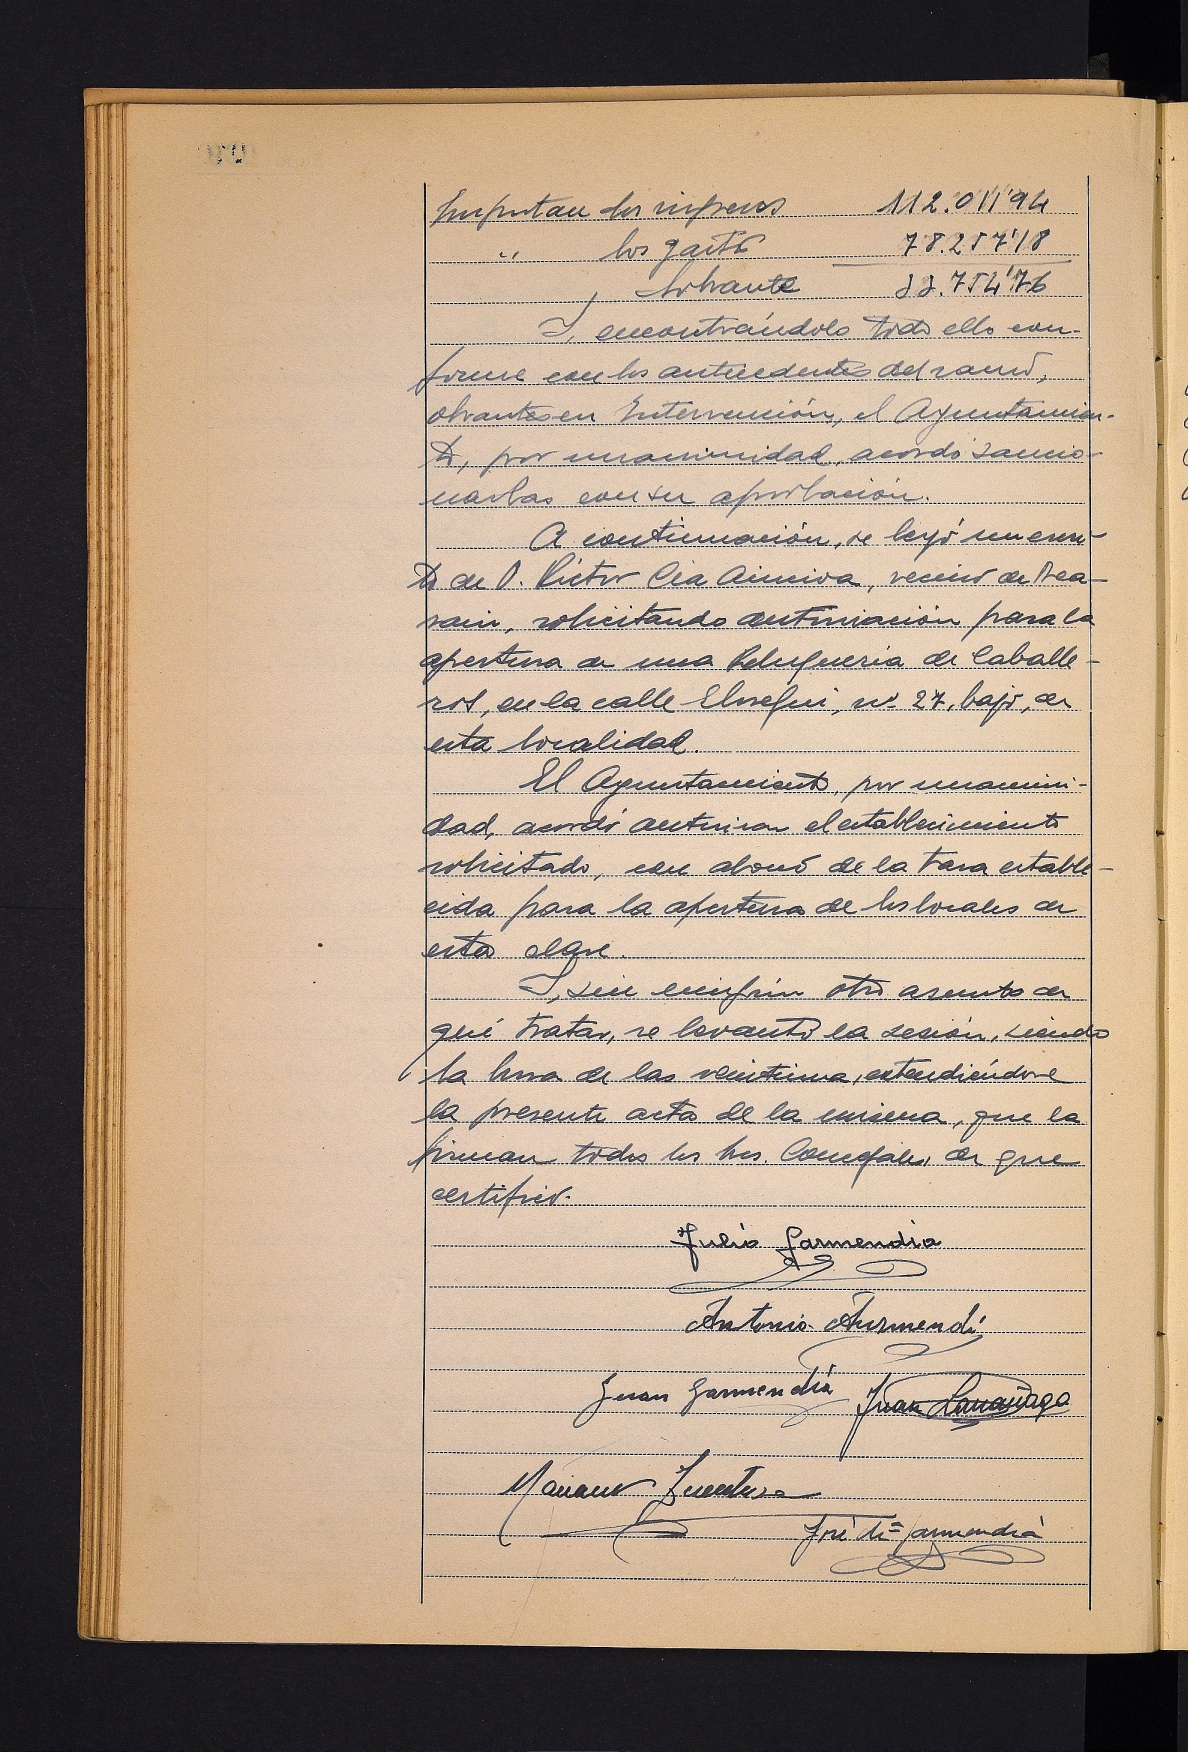 Importan los ingresos 112.011'94
" los gastos 78.257'18
Sobrante 33.754'76
Y, encontrándolo todo ello con-
forme con los antecedentes del ramo,
obrantes en Intervención, el Ayuntamien-
to, por unanimidad, acordó sancio-
narlas con su aprobación.
A continuación, se leyó un escri-
to de D. Víctor Cia, vecino de Bea-
sain, solicitando autorización para la
apertura de una Peluquería de Caballe-
ros, en la calle Elosegui, nº 27, bajo, de
esta localidad.
El Ayuntamiento, por unanimi-
dad, acordó autorizar el establecimiento
solicitado, con abono de la tasa estable-
cida para la apertura de los locales de
esta clase.
Y, sin ningún otro asunto de
qué tratar, se levantó la sesión, siendo
la hora de las veintiuna, extendiéndose
la presente acta de la misma, que la
firman todos los Sres. Concejales, de que
certifico.
Julio Garmendia
Antonio Aurmendi
Juan Garmendia Juan Larrañaga
Mariano
José Mª Garmendia